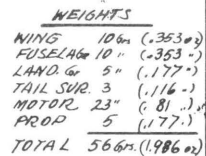 WEIGHTS
WING 10 Grs (.353 oz)
FUSELAGE 10 " (.353 ")
LAND. Gr 5 " (.177 ")
TAIL SUR. 3 (.116 ")
MOTOR 23 " ( .81 .)
PROP 5 (.177.)
TOTAL 56 Grs. (1.986 oz)